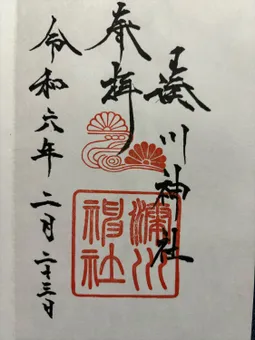 奉拝
湊川神社
令和六年二月二十三日
湊川神社